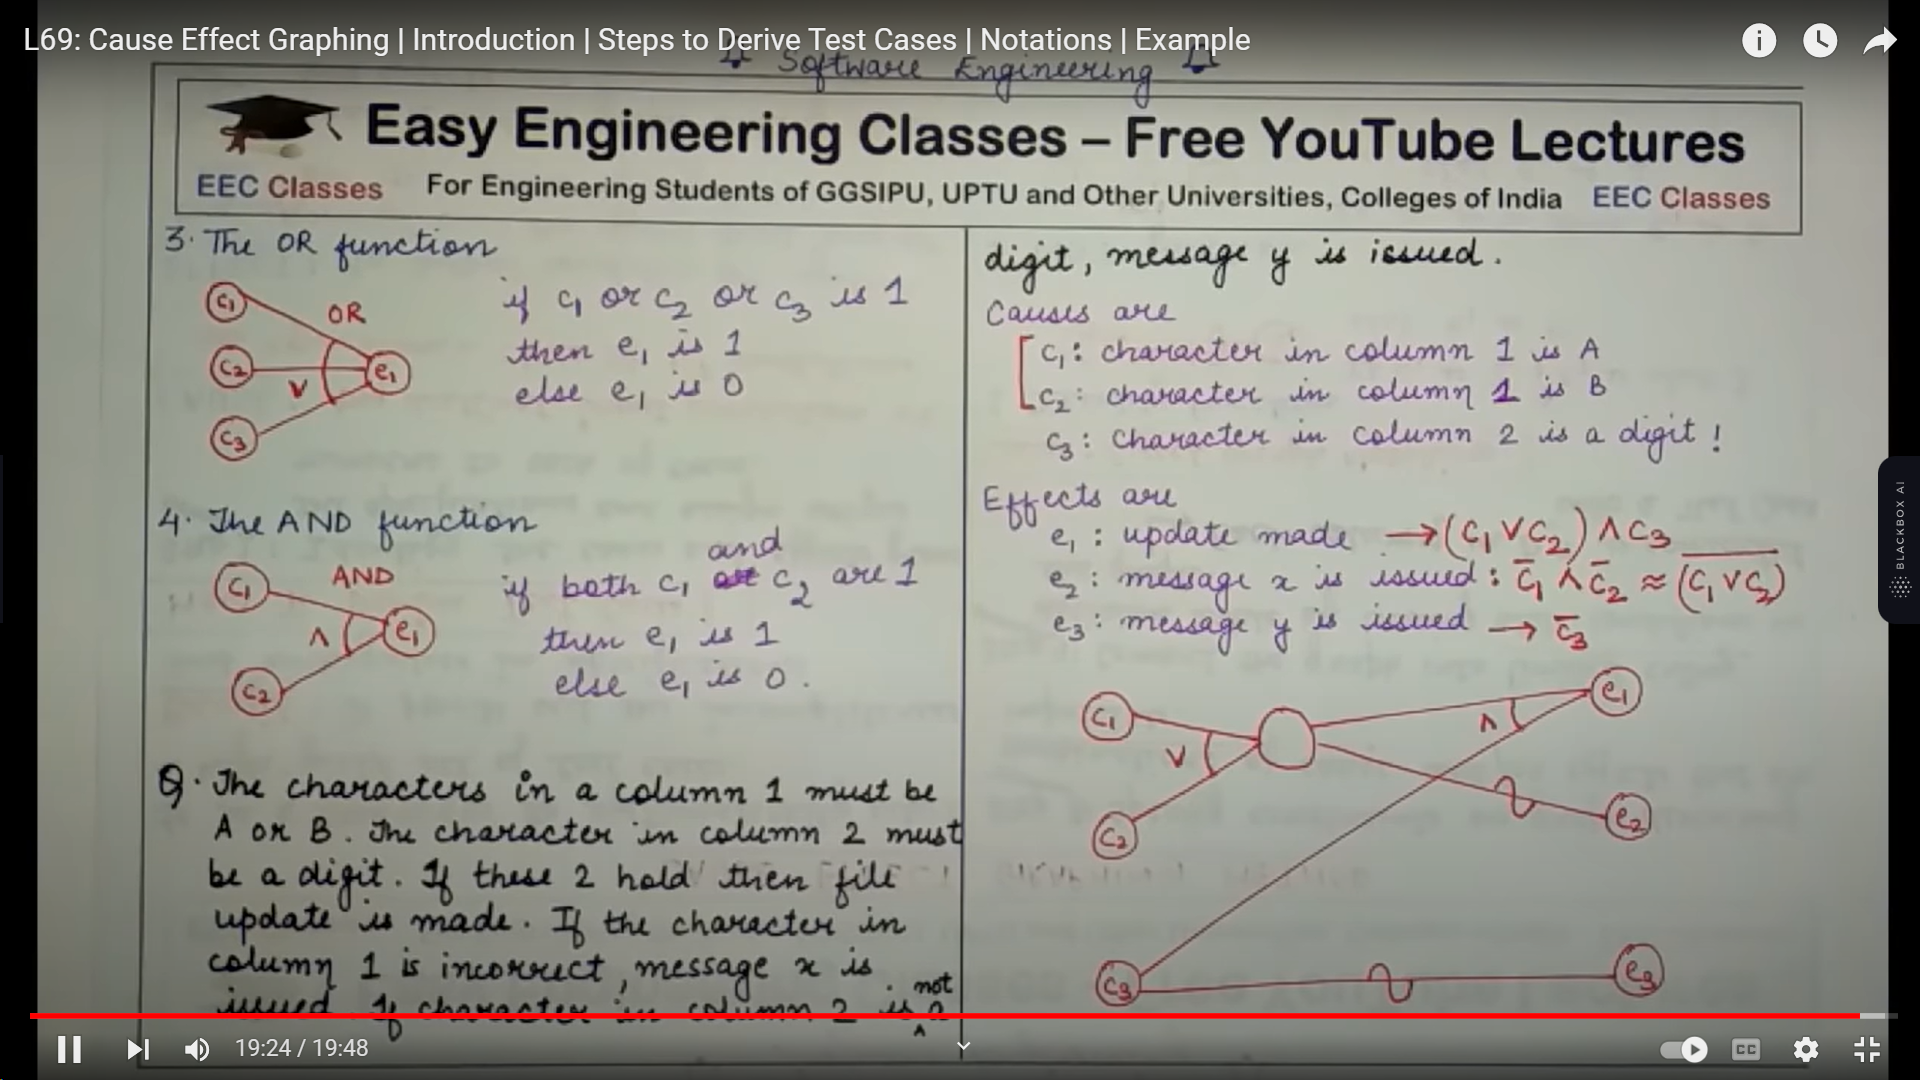 L69: Cause Effect Graphing | Introduction | Steps to Derive Test Cases | Notations | Example
Software Engineering
Easy Engineering Classes – Free YouTube Lectures
EEC Classes For Engineering Students of GGSIPU, UPTU and Other Universities, Colleges of India EEC Classes
3. The OR function
c₁
OR
c₂
V
e₁
c₃
if c₁ or c₂ or c₃ is 1
then e₁ is 1
else e₁ is 0
4. The AND function
c₁
AND
Λ
e₁
c₂
and
if both c₁ c₂ are 1
then e₁ is 1
else e₁ is 0.
Q. The characters in a column 1 must be
A or B. The character in column 2 must
be a digit. If these 2 hold then file
update is made. If the character in
column 1 is incorrect, message x is
issued. If character in column 2 is not a
digit, message y is issued.
Causes are
c₁: character in column 1 is A
c₂: character in column 1 is B
c₃: character in column 2 is a digit!
Effects are
e₁: update made → (C₁ V C₂) Λ C₃
e₂: message x is issued: c̄₁ Λ c̄₂ ≈ \overline{(C₁ V C₂)}
e₃: message y is issued → c̄₃
c₁
V
c₂
Λ
e₁
e₂
c₃
e₃
19:24 / 19:48
CC
BLACKBOX AI